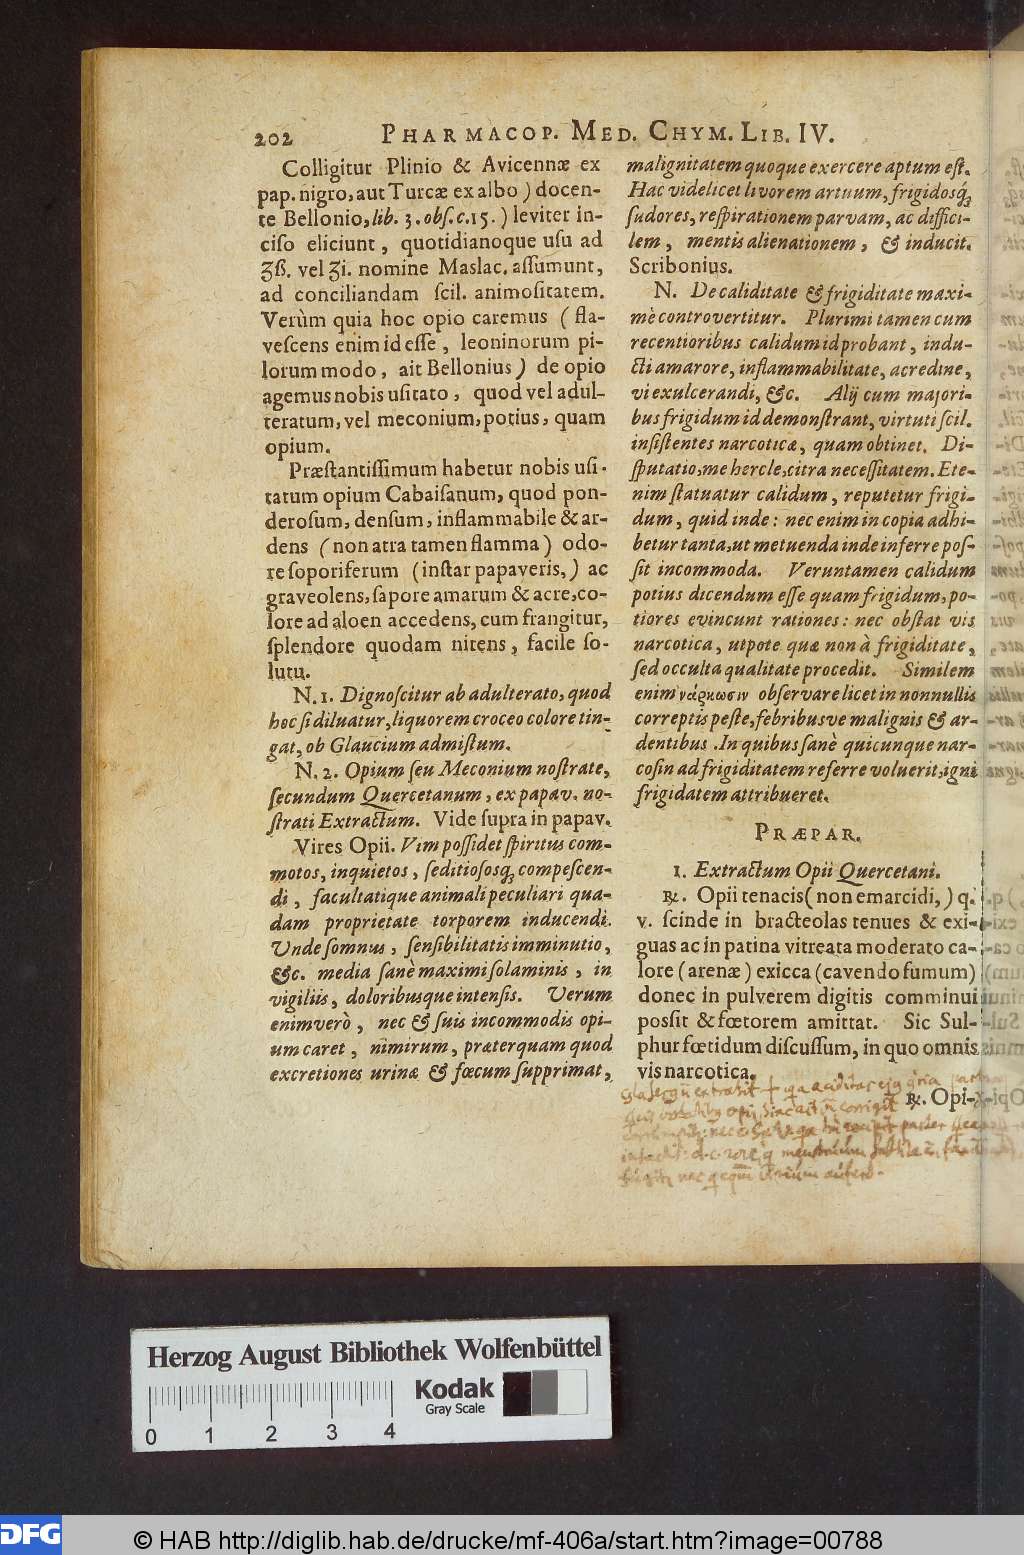 202 PHARMACOP. MED. CHYM. LIB. IV.
Colligitur Plinio & Avicennæ ex
pap. nigro, aut Turcæ ex albo) docen-
te Bellonio, lib. 3. obſ. c. 15.) leviter in-
ciſo eliciunt, quotidianoque uſu ad
ʒß. vel ʒi. nomine Maslac. aſſumunt,
ad conciliandam ſcil. animoſitatem.
Verùm quia hoc opio caremus (fla-
veſcens enim id eſſe, leoninorum pi-
lorum modo, ait Bellonius) de opio
agemus nobis uſitato, quod vel adul-
teratum, vel meconium, potius, quam
opium.
Præſtantiſſimum habetur nobis uſi-
tatum opium Cabaiſanum, quod pon-
deroſum, denſum, inflammabile & ar-
dens (non atra tamen flamma) odo-
re ſoporiferum (inſtar papaveris,) ac
graveolens, ſapore amarum & acre, co-
lore ad aloen accedens, cum frangitur,
ſplendore quodam nitens, facile ſo-
lutu.
N. 1. Dignoſcitur ab adulterato, quod
hoc ſi diluatur, liquorem croceo colore tin-
gat, ob Glaucium admiſtum.
N. 2. Opium ſeu Meconium noſtrate,
ſecundum Quercetanum, ex papav. no-
ſtrati Extractum. Vide ſupra in papav.
Vires Opii. Vim poſſidet ſpiritus com-
motos, inquietos, ſeditioſosq́; compeſcen-
di, facultatique animali peculiari qua-
dam proprietate torporem inducendi.
Unde ſomnus, ſenſibilitatis imminutio,
&c. media ſanè maximi ſolaminis, in
vigiliis, doloribusque intenſis. Verum
enimverò, nec & ſuis incommodis opi-
um caret, nimirum, præterquam quod
excretiones urinæ & fœcum ſupprimat,
malignitatem quoque exercere aptum eſt.
Hac videlicet livorem artuum, frigidosq́;
ſudores, reſpirationem parvam, ac diffici-
lem, mentis alienationem, & inducit.
Scribonius.
N. De caliditate & frigiditate maxi-
mè controvertitur. Plurimi tamen cum
recentioribus calidum id probant, indu-
cti amarore, inflammabilitate, acredine,
vi exulcerandi, &c. Alij cum majori-
bus frigidum id demonſtrant, virtuti ſcil.
inſiſtentes narcoticæ, quam obtinet. Di-
ſputatio, me hercle, citra neceſſitatem. Ete-
nim ſtatuatur calidum, reputetur frigi-
dum, quid inde: nec enim in copia adhi-
betur tanta, ut metuenda inde inferre poſ-
ſit incommoda. Veruntamen calidum
potius dicendum eſſe quam frigidum, po-
tiores evincunt rationes: nec obſtat vis
narcotica, utpote quæ non à frigiditate,
ſed occulta qualitate procedit. Similem
enim νάρκωσιν obſervare licet in nonnullis
correptis peſte, febribusve malignis & ar-
dentibus. In quibus ſanè quicunque nar-
coſin ad frigiditatem referre voluerit, igni
frigidatem attribueret.
PRÆPAR.
1. Extractum Opii Quercetani.
℞. Opii tenacis (non emarcidi,) q.
v. ſcinde in bracteolas tenues & exi-
guas ac in patina vitreata moderato ca-
lore (arenæ) exicca (cavendo fumum)
donec in pulverem digitis comminui
poſſit & fœtorem amittat. Sic Sul-
phur fœtidum diſcuſſum, in quo omnis
vis narcotica.
℞. Opi-
Herzog August Bibliothek Wolfenbüttel
Kodak
Gray Scale
0 1 2 3 4
DFG
© HAB http://diglib.hab.de/drucke/mf-406a/start.htm?image=00788